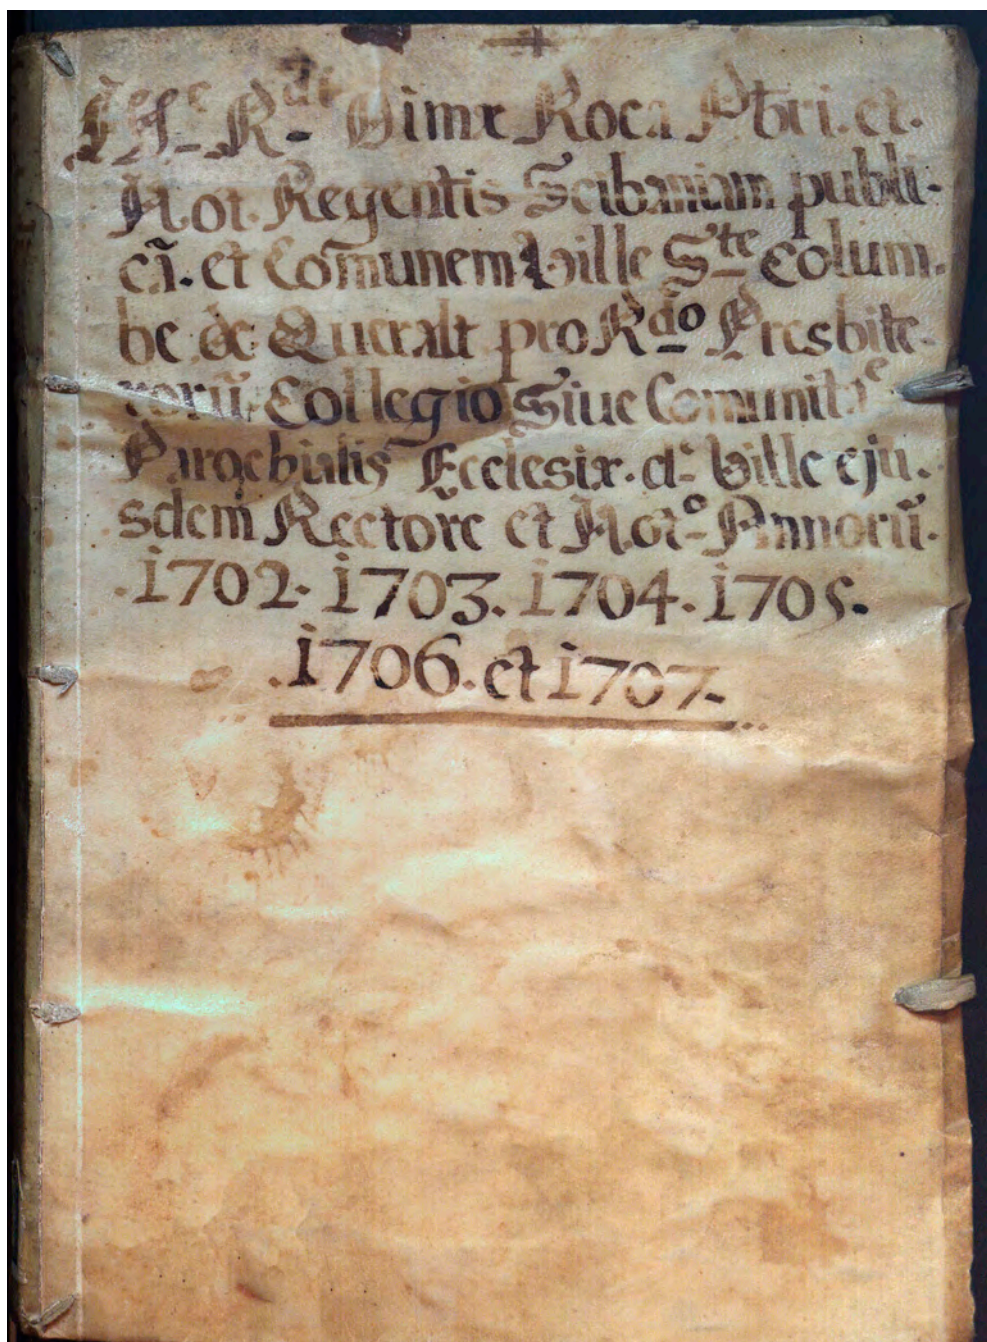 R^dt Dimæ Roca Pbri. et.
Not. Regentis Scibaniam publi-
cã. et Comunem Ville S^te Colum-
be de Queralt pro R^do Presbite-
rorũ. Collegio Siue Comunit^e
Parochialis Ecclesiæ. d^e Ville eju-
sdem Rectore et Not^o Annorũ.
.1702. 1703. 1704. 1705.
.1706. et 1707.